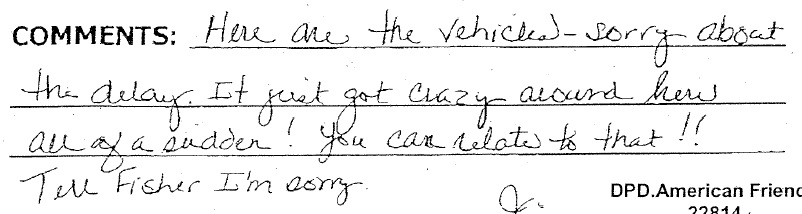 COMMENTS: Here are the vehicles - sorry about
the delay. It just got crazy around here
all of a sudden! You can relate to that!!
Tell Fisher I'm sorry.
DPD.American Friend
22814